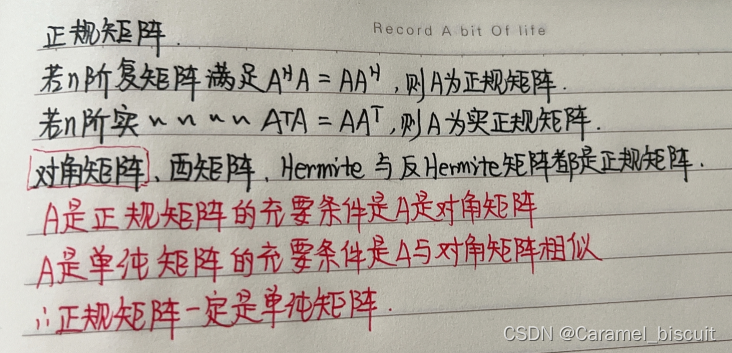 Record A bit Of life
正规矩阵.
若n阶复矩阵满足AᴴA = AAᴴ,则A为正规矩阵.
若n阶实 〃 〃 〃 〃 AᵀA = AAᵀ,则A为实正规矩阵.
对角矩阵、酉矩阵、Hermite与反Hermite矩阵都是正规矩阵.
A是正规矩阵的充要条件是A是对角矩阵
A是单纯矩阵的充要条件是A与对角矩阵相似
∴正规矩阵一定是单纯矩阵.
CSDN @Caramel_biscuit